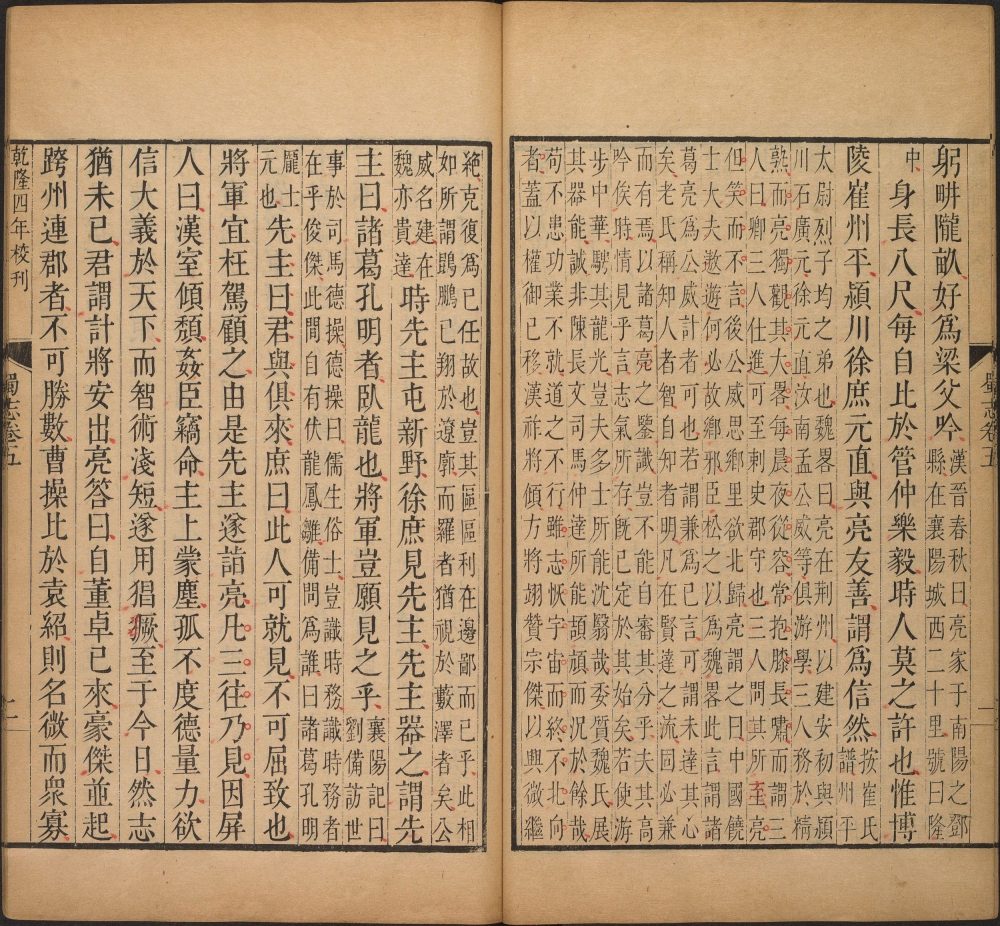 躬畊隴畝好爲梁父吟
漢晉春秋曰亮家于南陽之鄧
縣在襄陽城西二十里號曰隆
中 身長八尺每自比於管仲樂毅時人莫之許也惟博
陵崔州平潁川徐庶元直與亮友善謂爲信然
按崔氏
譜州平
太尉烈子均之弟也魏畧曰亮在荆州以建安初與潁
川石廣元徐元直汝南孟公威等俱游學三人務於精
熟而亮獨觀其大畧每晨夜從容常抱膝長嘯而謂三
人曰卿三人仕進可至刺史郡守也三人問其所至亮
但笑而不言後公威思鄉里欲北歸亮謂之曰中國饒
士大夫遨遊何必故鄉邪臣松之以爲魏畧此言謂諸
葛亮爲公威計者可也若謂兼爲己言可謂未達其心
矣老氏稱知人者智自知者明凡在賢達之流固必兼
而有焉以諸葛亮之鑒識豈不能自審其分乎夫其高
吟俟時情見乎言志氣所存既已定於其始矣若使游
步中華騁其龍光豈夫多士所能沈翳哉委質魏氏展
其器能誠非陳長文司馬仲達所能頡頏而況於餘哉
苟不患功業不就道之不行雖志恢宇宙而終不北向
者蓋以權御已移漢祚將傾方將翊贊宗傑以興微繼
絶克復爲己任故也豈其區區利在邊鄙而已乎此相
如所謂鵾鵬已翔於遼廓而羅者猶視於藪澤者矣公
威名建在
魏亦貴達
時先主屯新野徐庶見先主先主器之謂先
主曰諸葛孔明者臥龍也將軍豈願見之乎
襄陽記曰
劉備訪世
事於司馬德操德操曰儒生俗士豈識時務識時務者
在乎俊傑此間自有伏龍鳳雛備問爲誰曰諸葛孔明
龐士
元也
先主曰君與俱來庶曰此人可就見不可屈致也
將軍宜枉駕顧之由是先主遂詣亮凡三往乃見因屏
人曰漢室傾頽姦臣竊命主上蒙塵孤不度德量力欲
信大義於天下而智術淺短遂用猖獗至于今日然志
猶未已君謂計將安出亮答曰自董卓已來豪傑並起
跨州連郡者不可勝數曹操比於袁紹則名微而衆寡
乾隆四年校刊
蜀志卷五